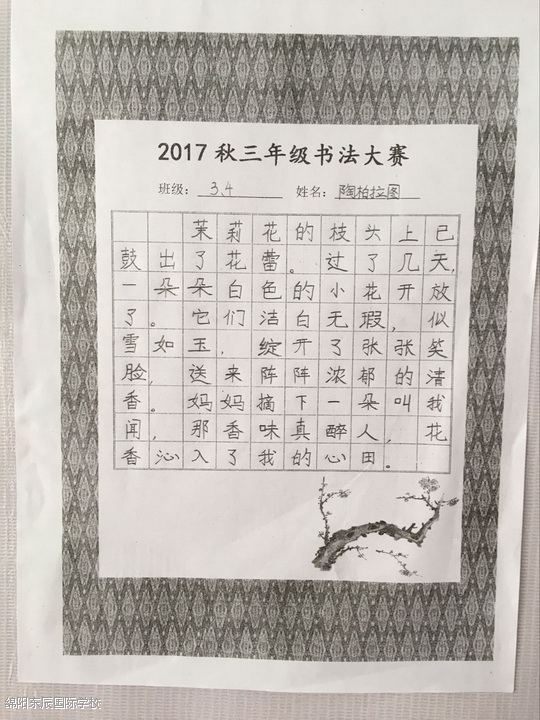 2017秋三年级书法大赛
班级: 3.4 姓名: 陶柏拉图
茉莉花的枝头上已
鼓出了花蕾。过了几天,
一朵朵白色的小花开放
了。它们洁白无瑕,似
雪如玉,绽开了张张笑
脸,送来阵阵浓郁的清
香。妈妈摘下一朵叫我
闻,那香味真醉人,花
香沁入了我的心田。
绵阳东辰国际学校